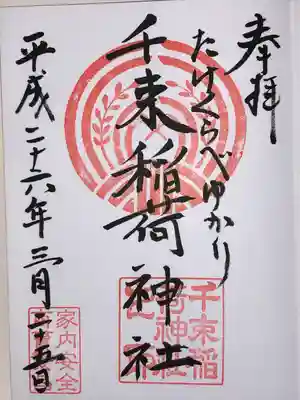 奉拝
たけくらべゆかり
千束稲荷神社
平成二十六年三月二十五日
千束稲
荷神社
家内安全